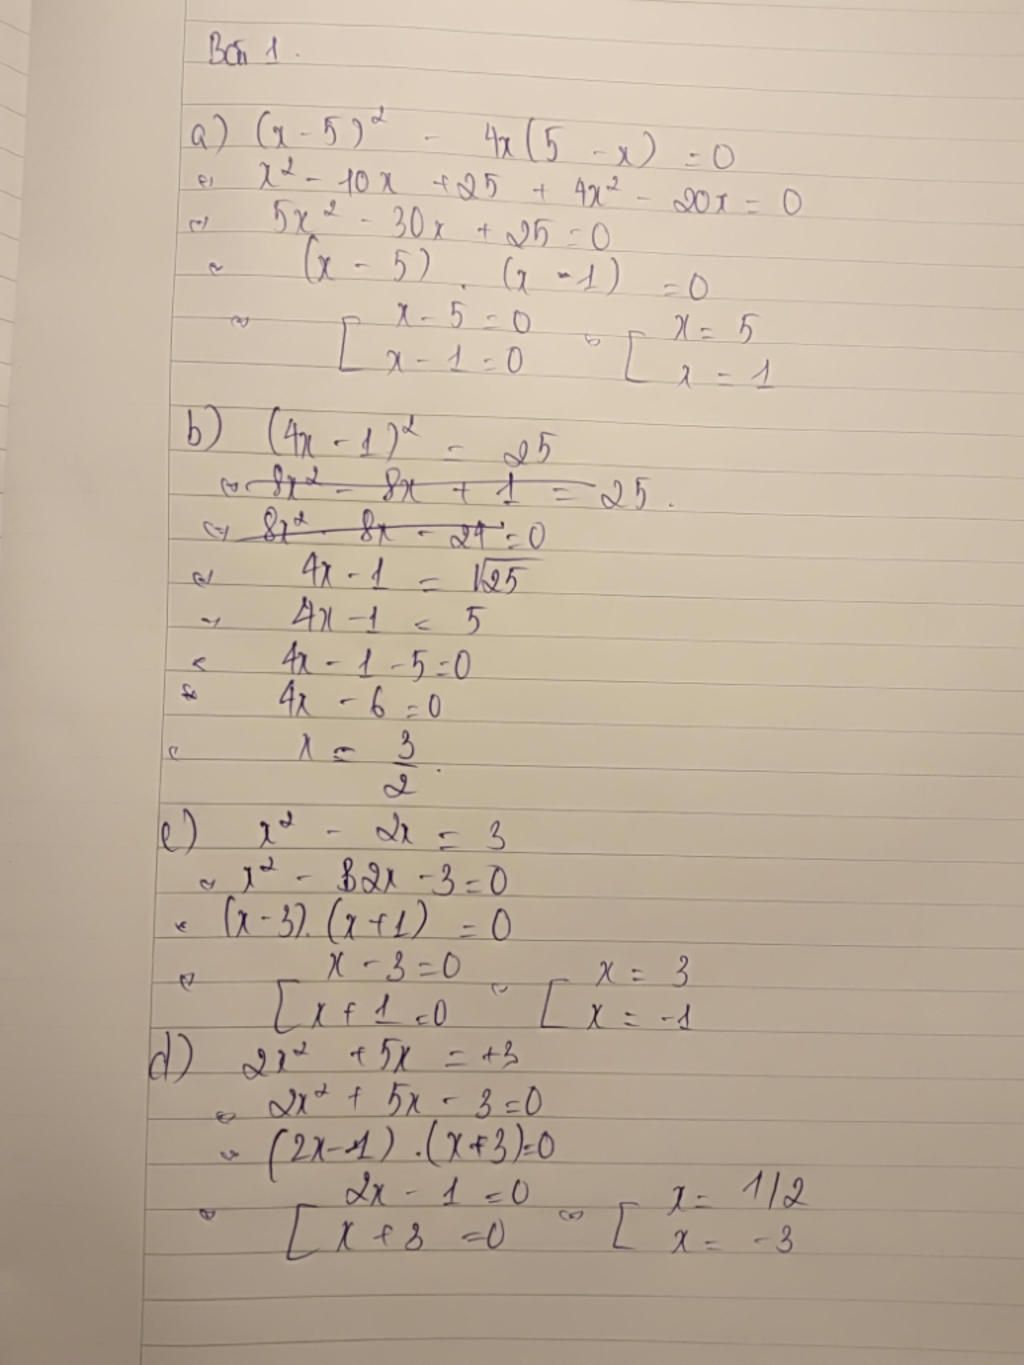 Bài 1.
a) (x - 5)² - 4x(5 - x) = 0
⇔ x² - 10x + 25 + 4x² - 20x = 0
⇔ 5x² - 30x + 25 = 0
⇔ (x - 5) . (x - 1) = 0
⇔ [ x - 5 = 0 ⇔ [ x = 5
x - 1 = 0 x = 1
b) (4x - 1)² = 25
⇔ 8x² - 8x + 1 = 25.
⇔ 8x² - 8x - 24 = 0
⇔ 4x - 1 = √25
⇔ 4x - 1 = 5
⇔ 4x - 1 - 5 = 0
⇔ 4x - 6 = 0
⇔ x = 3/2.
c) x² - 2x = 3
⇔ x² - 2x - 3 = 0
⇔ (x - 3). (x + 1) = 0
⇔ [ x - 3 = 0 ⇔ [ x = 3
x + 1 = 0 x = -1
d) 2x² + 5x = +3
⇔ 2x² + 5x - 3 = 0
⇔ (2x - 1) . (x + 3) = 0
⇔ [ 2x - 1 = 0 ⇔ [ x = 1/2
x + 3 = 0 x = -3